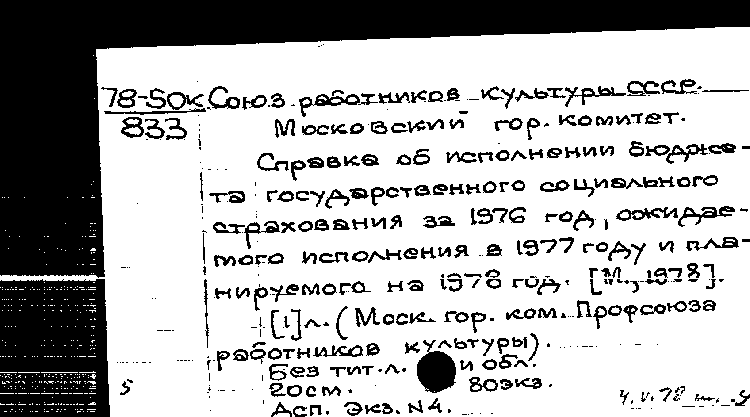 78-50к Союз работников культуры СССР.
833 Московский гор. комитет.
Справка об исполнении бюдже-
та государственного социального
страхования за 1976 год, ожидае-
мого исполнения в 1977 году и пла-
нируемого на 1978 год. [М., 1978].
[1]л. (Моск. гор. ком. Профсоюза
работников культуры).
Без тит. л. и обл.
5 20см. 80экз.
Асп. Экз. N4. 4.V.78